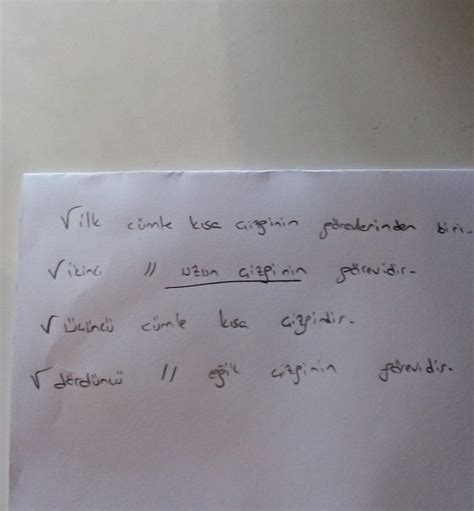 √ ilk cümle kısa çizginin görevlerinden biri.
√ ikinci // uzun çizginin görevidir.
√ üçüncü cümle kısa çizgindir.
√ dördüncü // eğik çizginin görevidir.